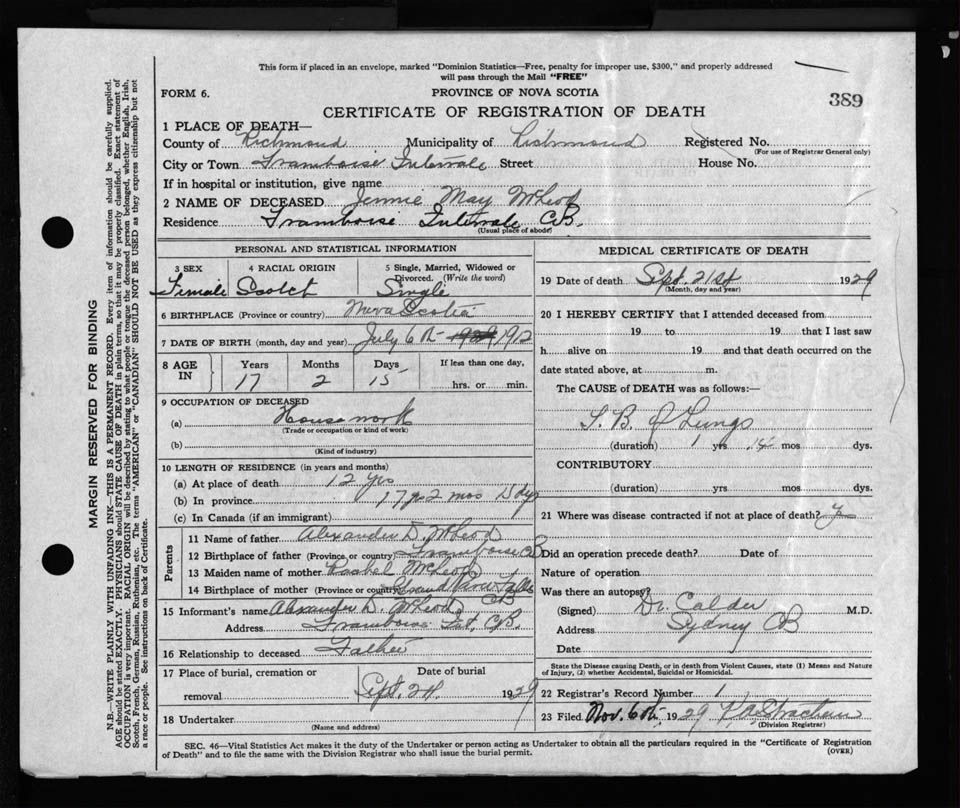 This form if placed in an envelope, marked "Dominion Statistics—Free, penalty for improper use, $300," and properly addressed
will pass through the Mail "FREE"
FORM 6.
PROVINCE OF NOVA SCOTIA
389
CERTIFICATE OF REGISTRATION OF DEATH
1 PLACE OF DEATH—
County of Richmond Municipality of Richmond Registered No.
(For use of Registrar General only)
City or Town Framboise Intervale Street House No.
If in hospital or institution, give name
2 NAME OF DECEASED Jennie May McLeod
Residence Framboise Intervale C.B.
(Usual place of abode)
PERSONAL AND STATISTICAL INFORMATION
3 SEX 4 RACIAL ORIGIN 5 Single, Married, Widowed or
Divorced. (Write the word)
Female Scotch Single
6 BIRTHPLACE (Province or country) Nova Scotia
7 DATE OF BIRTH (month, day and year) July 6th 1912
8 AGE IN Years Months Days If less than one day,
17 2 15 hrs. or min.
9 OCCUPATION OF DECEASED
(a) House work
(Trade or occupation or kind of work)
(b)
(Kind of industry)
10 LENGTH OF RESIDENCE (in years and months)
(a) At place of death 12 yrs
(b) In province 17 yrs 2 mos 15 dys
(c) In Canada (if an immigrant)
Parents
11 Name of father Alexander D. McLeod
12 Birthplace of father (Province or country) Framboise CB
13 Maiden name of mother Rachel McLeod
14 Birthplace of mother (Province or country) Grand River Falls
CB
15 Informant's name Alexander D. McLeod
Address Framboise Int, C.B.
16 Relationship to deceased Father
17 Place of burial, cremation or Date of burial
removal Sept. 24 1929
18 Undertaker
(Name and address)
MEDICAL CERTIFICATE OF DEATH
19 Date of death Sept. 21st 1929
(Month, day and year)
20 I HEREBY CERTIFY that I attended deceased from
19 to 19 that I last saw
h alive on 19 and that death occurred on the
date stated above, at m.
The CAUSE of DEATH was as follows:—
T. B. of Lungs
(duration) 1 yrs mos dys.
CONTRIBUTORY
(duration) yrs mos dys.
21 Where was disease contracted if not at place of death?
Did an operation precede death? Date of
Nature of operation
Was there an autopsy?
(Signed) Dr. Calder M.D.
Address Sydney CB
Date
State the Disease causing Death, or in death from Violent Causes, state (1) Means and Nature
of Injury, (2) whether Accidental, Suicidal or Homicidal.
22 Registrar's Record Number 1
23 Filed Nov. 6th 1929 Strachan
(Division Registrar)
SEC. 46—Vital Statistics Act makes it the duty of the Undertaker or person acting as Undertaker to obtain all the particulars required in the "Certificate of Registration
of Death" and to file the same with the Division Registrar who shall issue the burial permit.
(OVER)
MARGIN RESERVED FOR BINDING
N.B.—WRITE PLAINLY WITH UNFADING INK—THIS IS A PERMANENT RECORD. Every item of information should be carefully supplied.
AGE should be stated EXACTLY. PHYSICIANS should STATE CAUSE OF DEATH in plain terms, so that it may be properly classified. Exact statement of
OCCUPATION is very important. RACIAL ORIGIN will be described by stating to what people or tongue the deceased person belonged, whether English, Irish,
Scotch, French, German, Russian, Ruthenian, etc. The terms "AMERICAN" or "CANADIAN" SHOULD NOT BE USED as they express citizenship but not
a race or people. See instructions on back of Certificate.